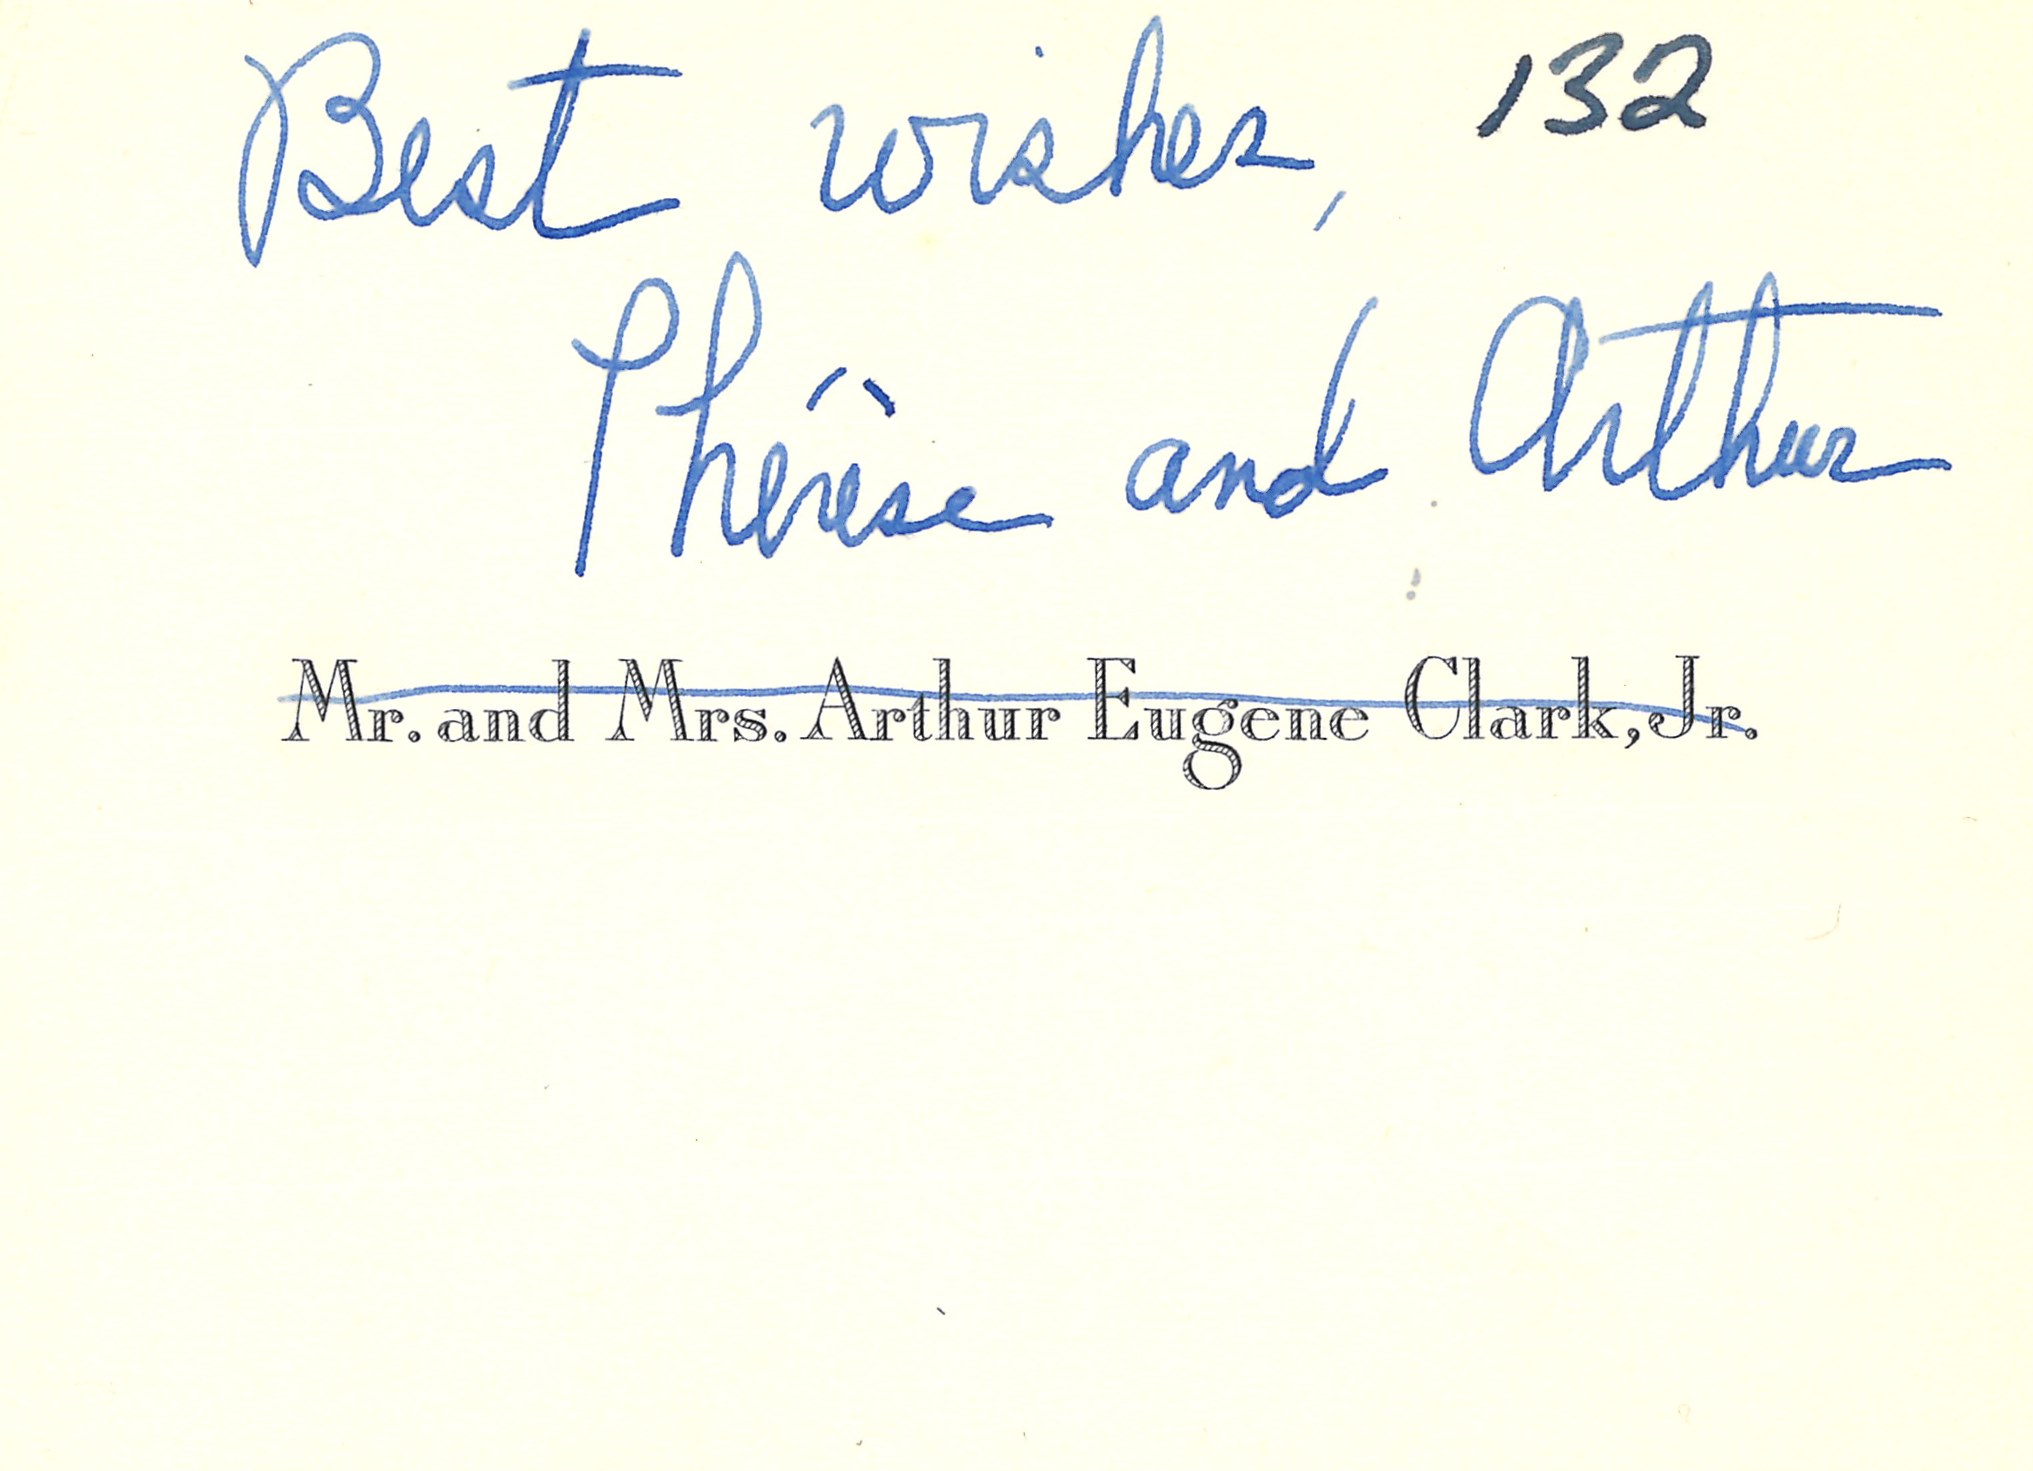 Best wishes, 132
Thérèse and Arthur
Mr. and Mrs. Arthur Eugene Clark, Jr.